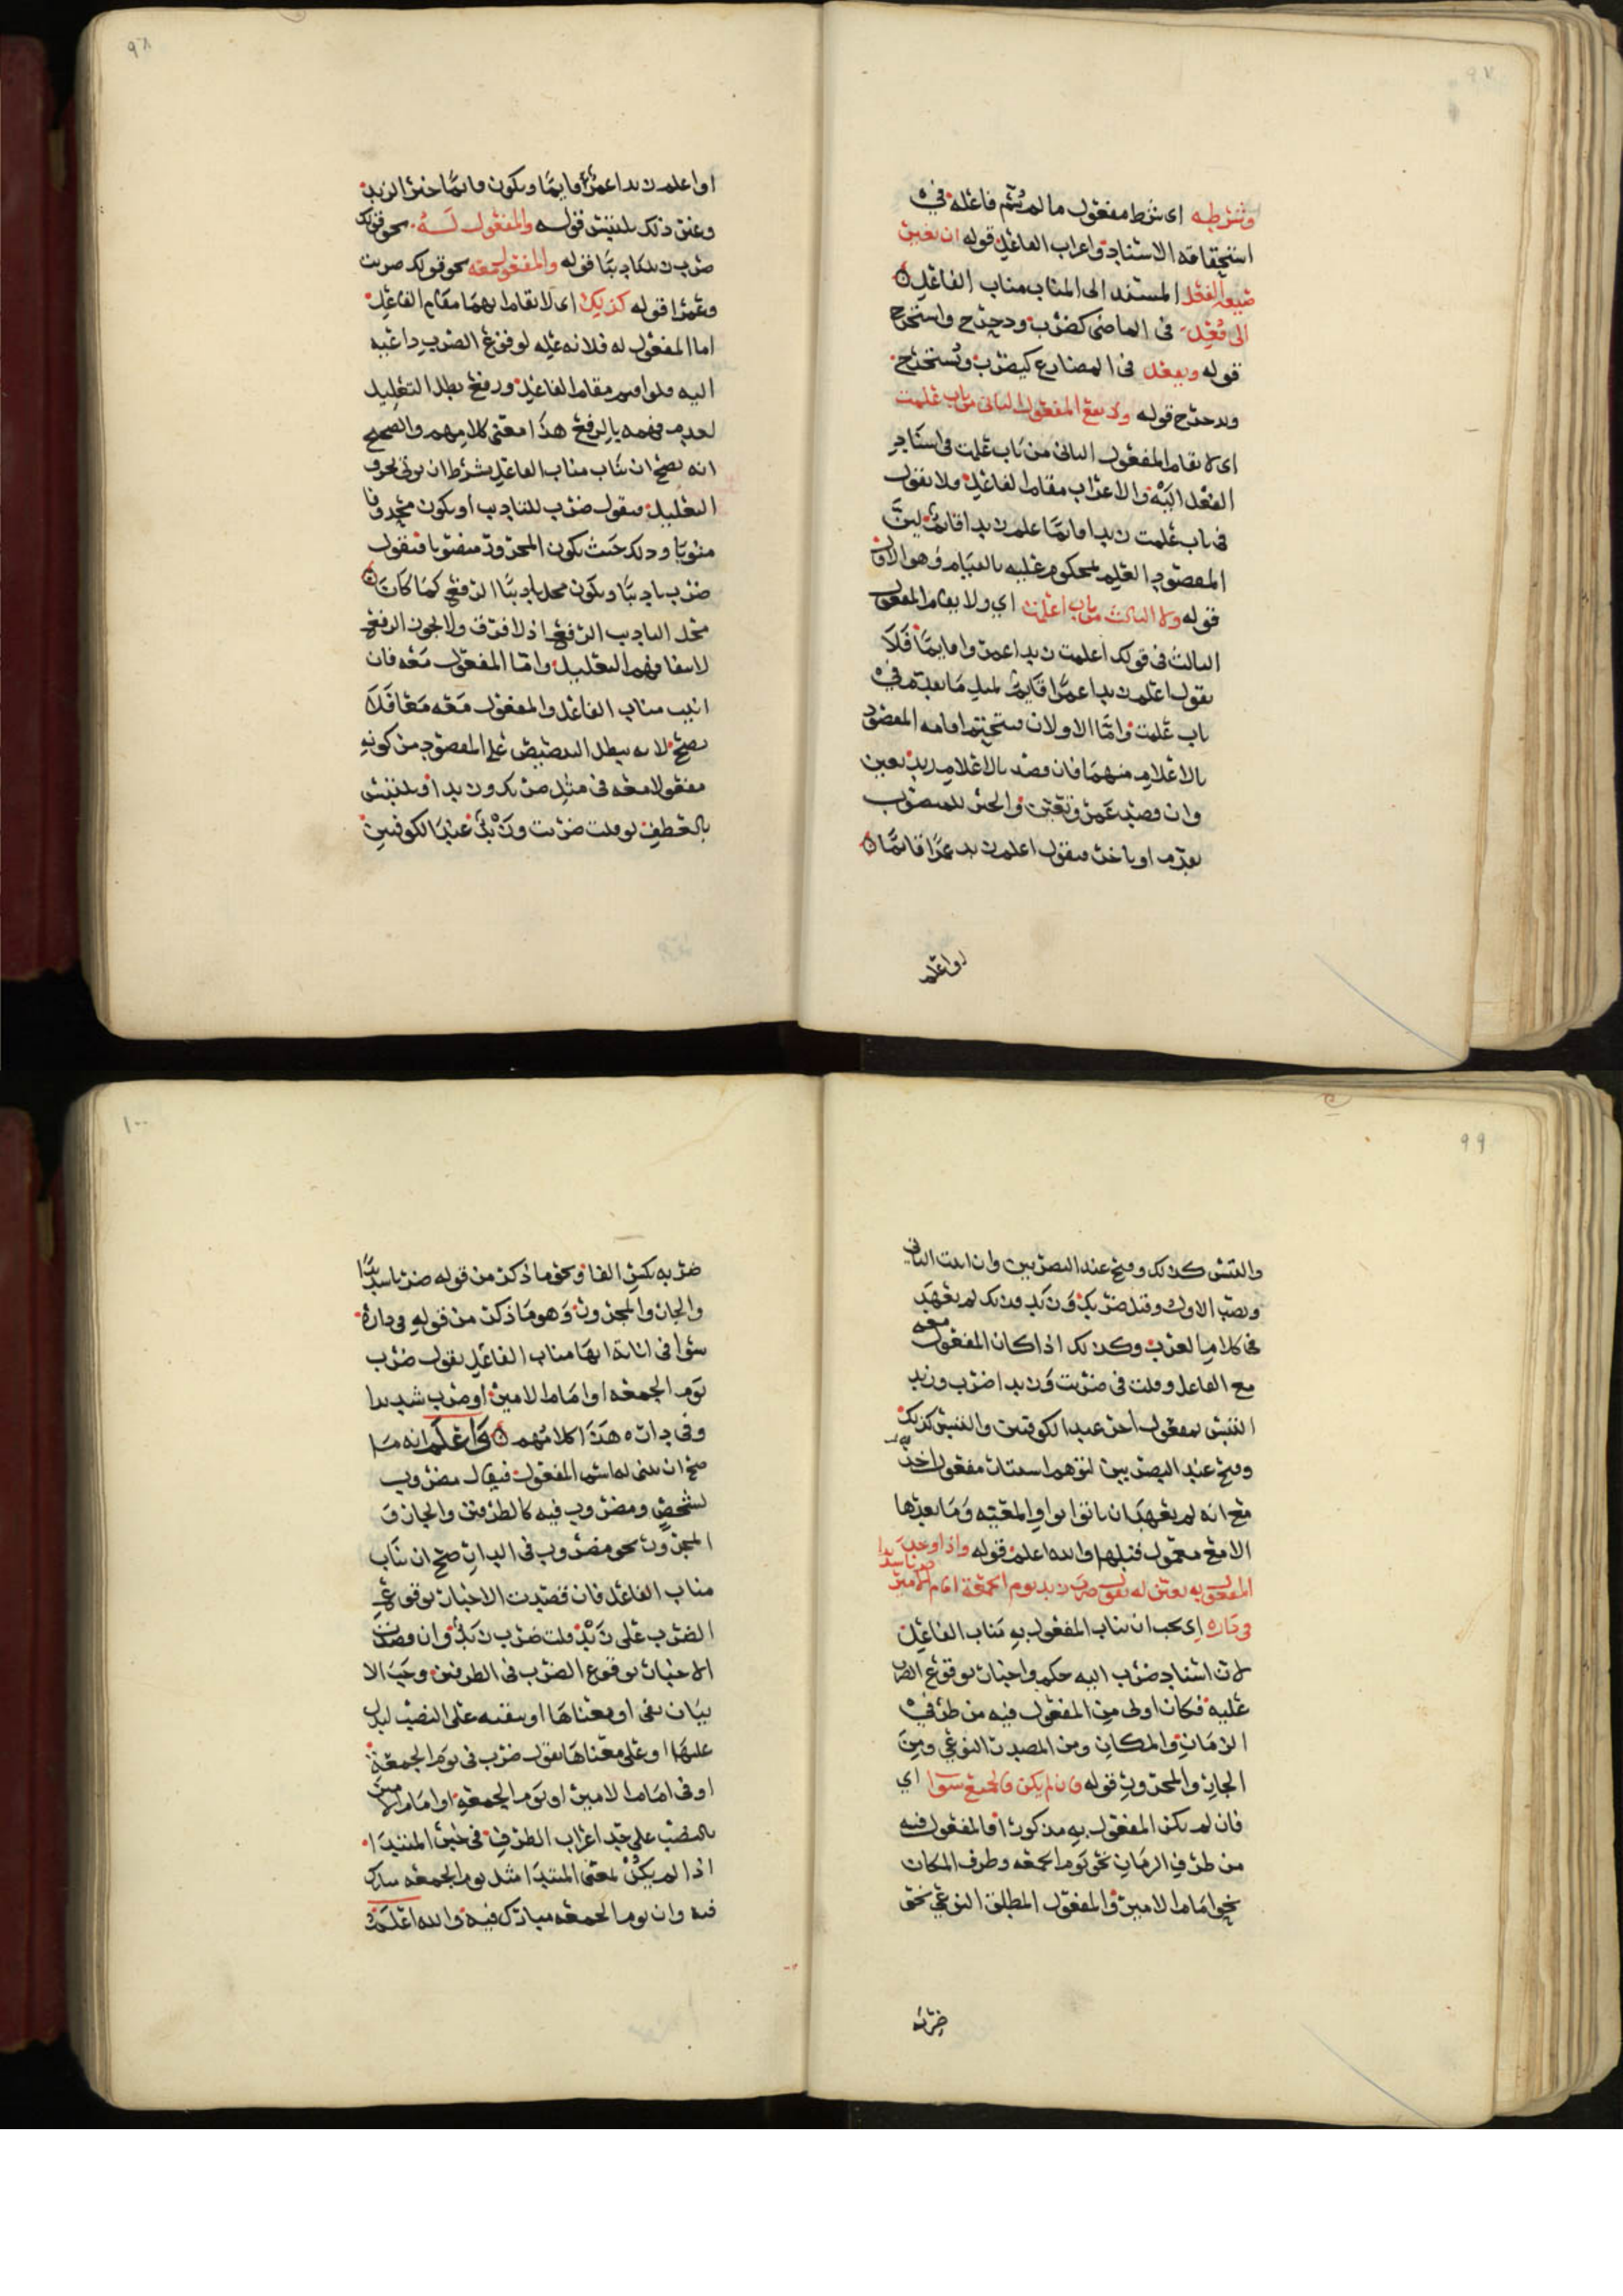 ٩٧
وشرطه اى شرط مفعول ما لم يُسَمّ فاعله فى
استحقاقه الاسناد واعراب الفاعل قوله ان تغير
صيغه الفعل المسند الى المناب مناب الفاعل
الى فُعِلَ فى الماضى كضرب ودحرج واستخرج
قوله ويفعل فى المضارع كيضرب ويُستخرج
ويدحرج قوله ولا يقع المفعول الثانى من باب علمت
اى لا يقام المفعول الثانى من باب علمت فى اسناد
الفعل اليه والاعراب مقام الفاعل فلا تقول
فى باب علمت زيدا قائما علم زيدا قائم
المقصود العلم لمحكوم عليه بالقيام وهو الاول
قوله ولا الثالث من باب اعلمت اي ولا يقام المفعول
الثالث فى قولك اعلمت زيدا عمروا قايمًا فَلَا
تقول اعلم زيدا عمرًا قايم لمثل ما تقدم فى
باب علمت وامّا الاولان فتحتم اقامه المقصود
بالاعلام منهما فان قصد بالاعلام زيد تعين
وان قصد عمرو تعين والخبر للمنصوب
تقدم او تاخر فتقول اعلم زيد عمرًا قائمًا
او اعلم
٩٨
او اعلم زيدا عمرٌو قايمًا ويكون قائمًا خبر الزيد
وعن ذلك للبس قوله والمفعول لَهُ نحو قولك
ضرب زيد تاديبًا قوله والمفعول معه نحو قولك ضربت
وعمرًا قوله كذلك اى لا يقام بهما مقام الفاعل
اما المفعول له فلانه علة لوقوع الضرب داعيه
اليه فلو اقيم مقام الفاعل ورفع بطل التعليل
لعدم فهمه بالرفع هذا معنى كلامهم والصحيح
انه يصح ان يناب مناب الفاعل بشرط ان يؤتى بحرف
التعليل فيقول ضرب للتاديب او يكون محذوفا
منويا وذلك حيث يكون المجرور منصوبا فتقول
ضرب تاديبًا ويكون محل تاديبًا الرفع كما كان
محل التاديب الرفع اذ لا فرق ولا يجوز الرفع
لانتفا فهم التعليل وامّا المفعول مَعَه فان
انيب مناب الفاعل والمفعول مَعَه مَعًا فَلَا
يصح لانه يبطل التنصيص على المقصود من كونه
مفعولا معه فى مثل ضرب وزيدا ويلتبس
بالعطف لو قلت ضربت وزيدٌ عند الكوفيين
٩٩
واللبس كذلك وقبح عند البصريين وان انبت الثانى
ونصب الاول وقيل ضربك وزيد وذلك لم يعهد
فى كلام العرب وكذلك اذا كان المفعول معه
مع الفاعل وقلت فى ضربت وزيدا ضرب وزيد
التبس بمفعول اخر عند الكوفيين واللبس كذلك
وقبح عند البصريين لتوهم استئناف مفعول اخر
مع انه لم يعهد ان ياتوا بواو المعيّه وما بعدها
الا مع معمول قبلها والله اعلم قوله واذا وجد
المفعول به تعين له تقول ضرب زيد يوم الجمعة امام الامير ضربا شديدا
فى داره اى يجب ان يناب المفعول به مناب الفاعل
لان اسناد ضرب اليه حكم واخبار بوقوع الضرب
عليه فكان اولى من المفعول فيه من ظرفى
الزمان والمكان ومن المصدر النوعي ومن
الجار والمجرور قوله فان لم يكن فالجميع سوا اي
فان لم يكن المفعول به مذكورا فالمفعول فيه
من ظرف الزمان نحو يوم الجمعه وظرف المكان
نحو امام الامير والمفعول المطلق النوعي نحو
ضربه
١٠٠
ضربه بكسر الفا ونحو ما ذكر من قوله ضربا شديدًا
والجار والمجرور وهو ما ذكر من قوله فى داره
سوا فى انابتها مناب الفاعل تقول ضرب
يوم الجمعه او امام الامير او ضرب شديدا
وفى داره هَذا كلامُهم واعلم انه ما
صح ان يبنى له اسم المفعول فيقال مضروب
لشخص ومضروب فيه كالظرفين والجار و
المجرور نحو مضروب فى الدار صح ان يناب
مناب الفاعل فان قصدت الاخبار بوقوع
الضرب على زيد قلت ضرب زيد وان قصدت
الاخبار بوقوع الضرب فى الظرفين وجب الا
تيان بفى او معناها او تبقيه على النصب ليدل
عليها او على معناها تقول ضرب فى يوم الجمعة
او فى امام الامير او يوم الجمعه او امام الامير
بالنصب على حد اعراب الظرف فى خبر المبتدا
اذا لم يكن لمعنى المبتدا مثل يوم الجمعه مبارك
فيه وان يوم الجمعه مبارك فيه والله اعلم